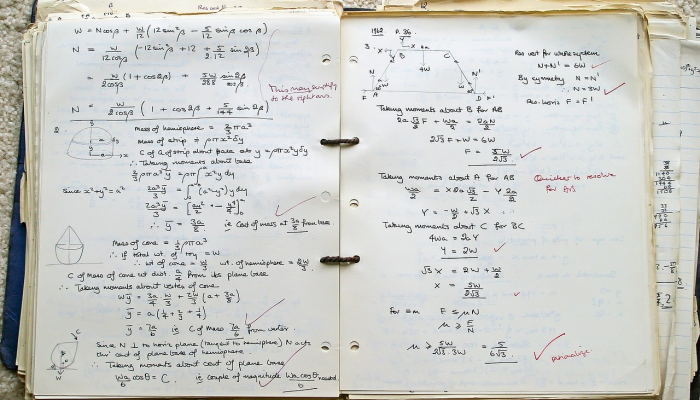 W = N cosβ + W/12 (12 sin²β − 5/12 sinβ cosβ)
N = W/(12cosβ) (−12 sin²β + 12 + 5/2.12 sin 2β)
= W/(2cosβ) (1 + cos2β) + 5W/288 sin2β/cosβ
This may simplify to the right ans.
N = W/(2cosβ) (1 + cos2β + 5/144 sin2β)
2.
Mass of hemisphere = 2/3 ρπa³
Mass of strip = ρπx²δy
C of G of strip about base at y = ρπx²yδy
∴ Taking moments about base
2/3 ρπa³ ȳ = ρπ∫x²y dy
Since x²+y²=a²
2a³ȳ/3 = ∫(a²−y²)y dy
2a³ȳ/3 = [a²y²/2 − y⁴/4]
∴ ȳ = 3a/8 ie C of mass at 3a/8 from base
Mass of cone = 1/3 ρπa³
∴ If total wt of toy = W
∴ wt of cone = W/3 wt. of hemisphere = 2W/3
C of mass of cone at dist. a/4 from its plane base
∴ Taking moments about vertex of cone
Wȳ = 3a/4 W/3 + 2W/3 (a + 3a/8)
ȳ = 7a/6 ie C of mass 7a/6 from vertex
Since N ⊥ to horiz plane (tangent to hemisphere) N acts
thro' cent of plane base of hemisphere
∴ Taking moments about cent of plane base
Wa/6 cosθ = C. ie couple of magnitude Wa cosθ/6 needed
1962 P. 36
3.
Res vert for whole system
N + N' = 6W
By symmetry N = N'
∴ N = 3W
Res. horiz F = F'
Taking moments about B for AB
2a√3/2 F + Wa/2 = 2aN/2
2√3F + W = 6W
F = 5W/2√3
Taking moments about A for AB
Quicker to resolve for AB
Wa/2 = X2a√3/2 − Y 2a/2
Y = −W/2 + √3X
Taking moments about C for BC
4Wa = 2aY
Y = 2W
√3X = 2W + W/2
X = 5W/2√3
for = m F ≤ μN
μ ≥ F/N
μ ≥ 5W/(2√3.3W) = 5/6√3